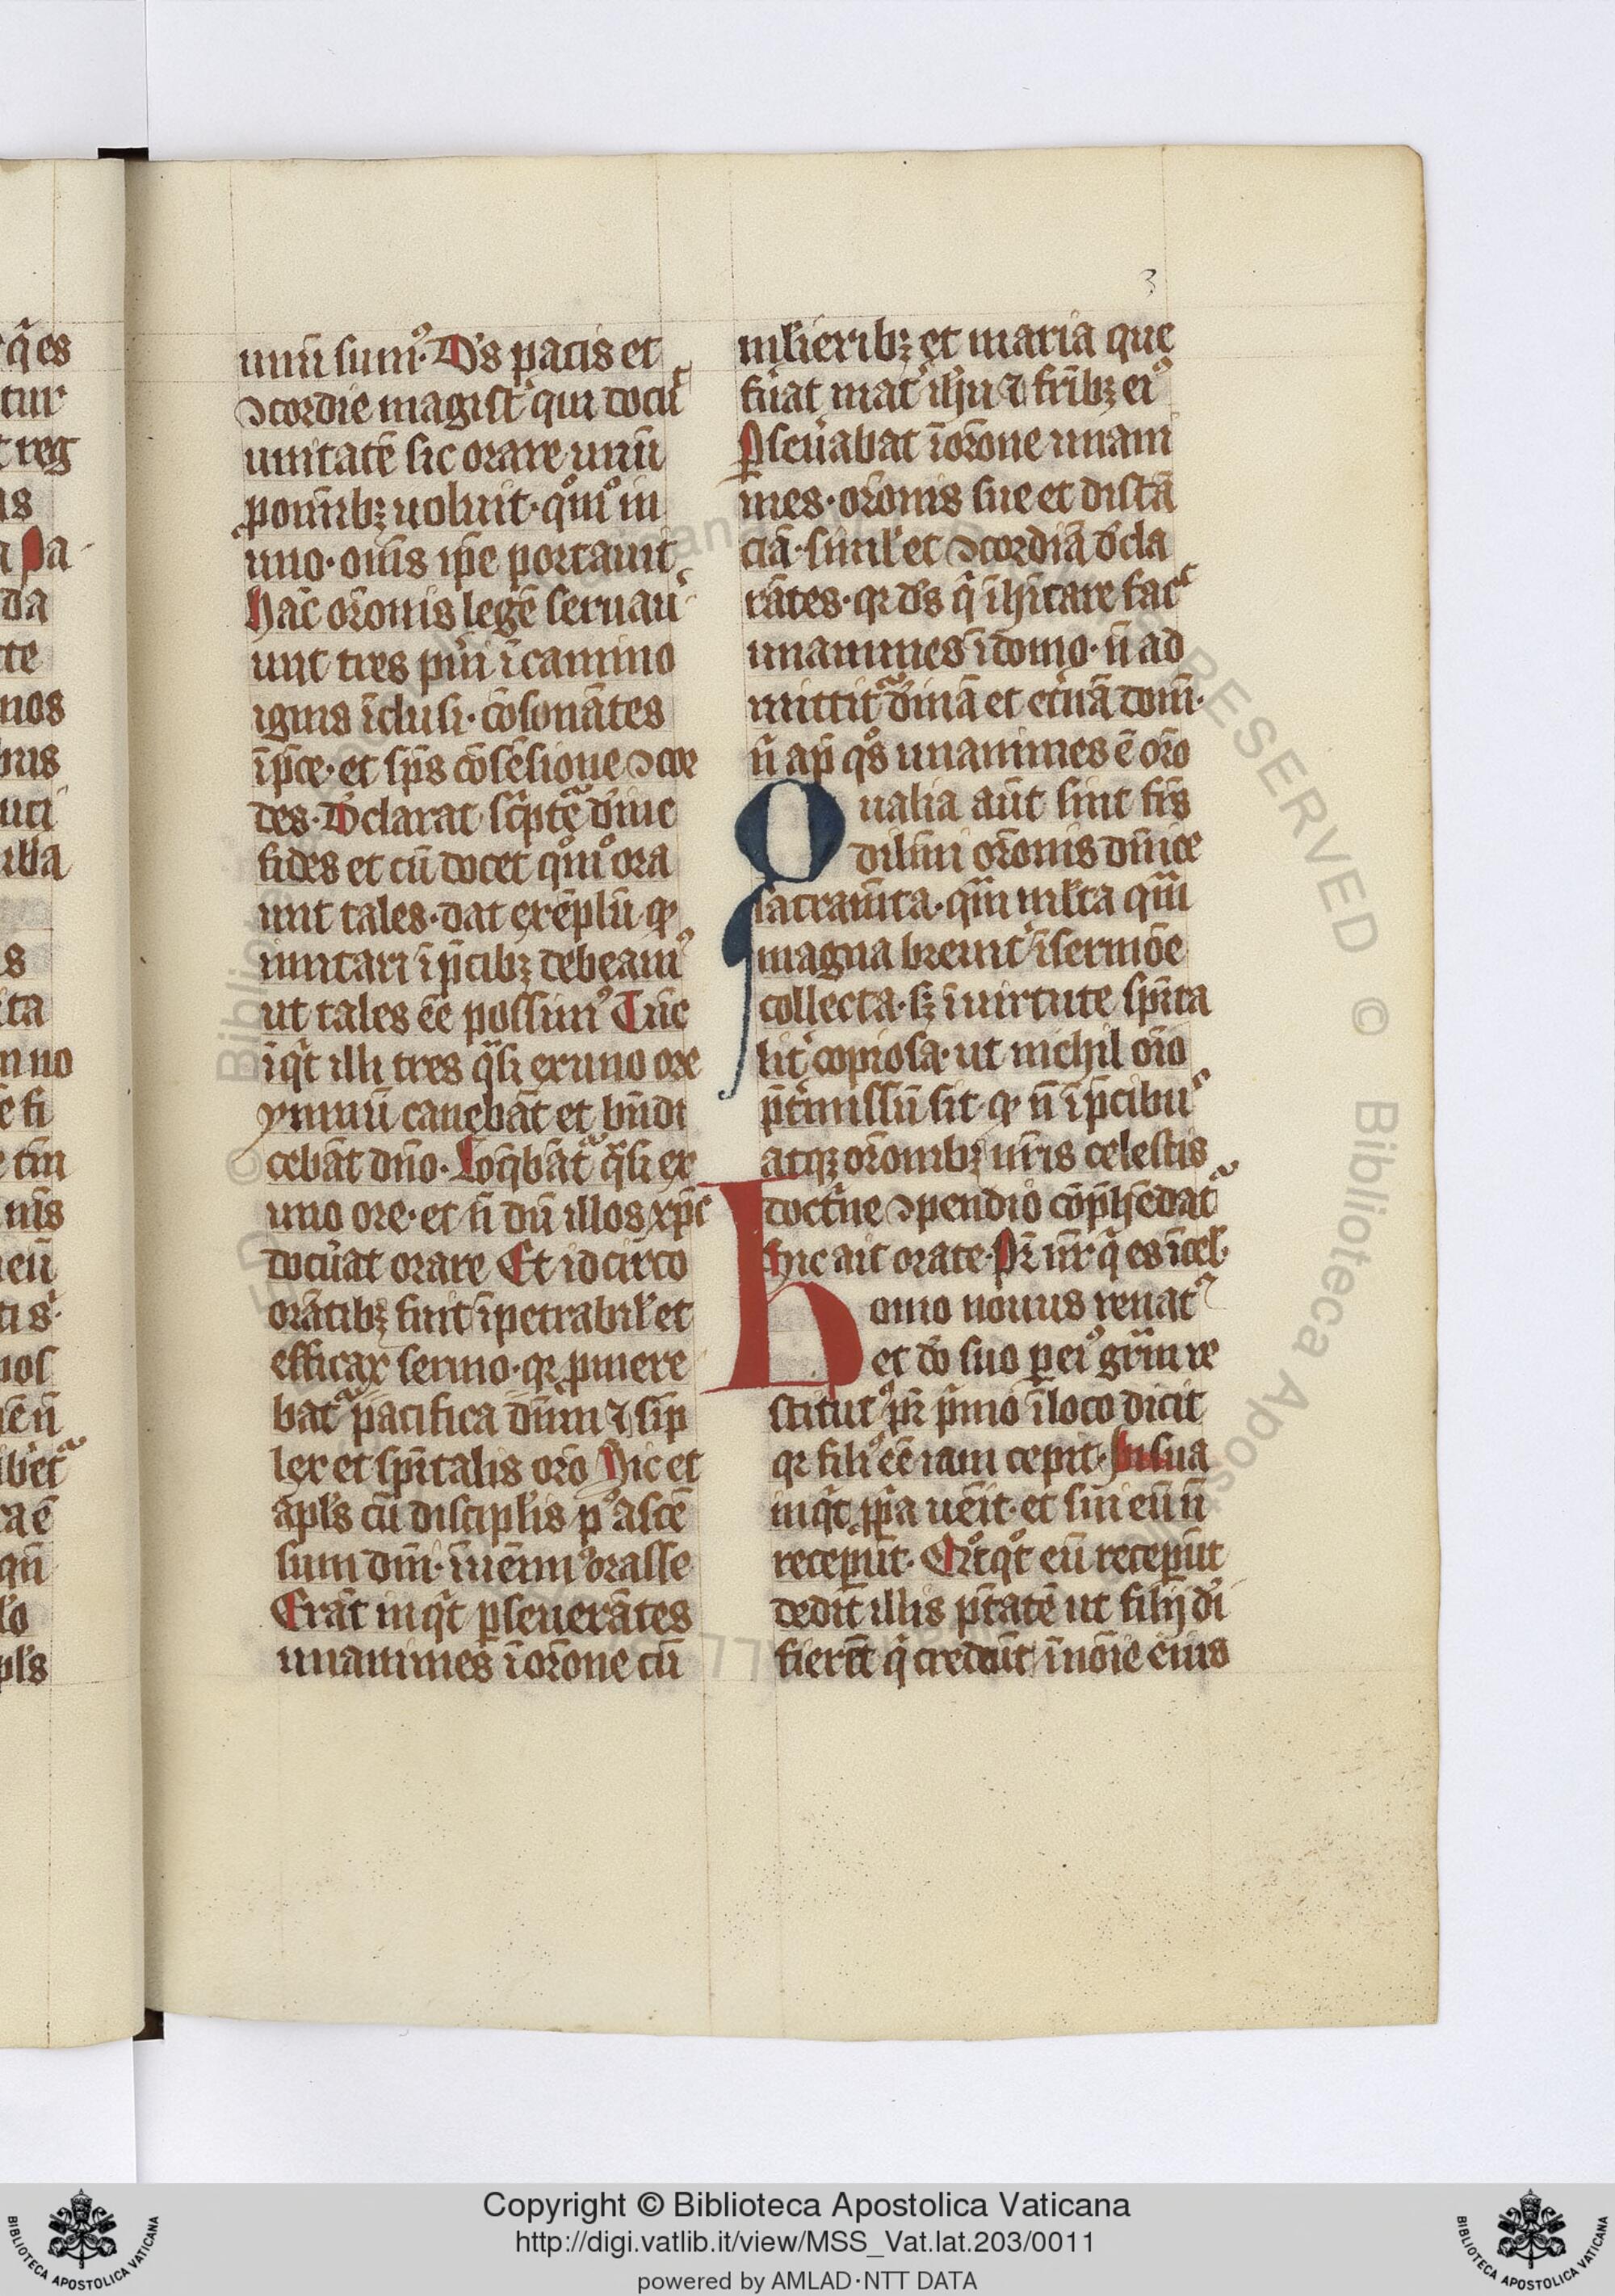 3
unū sumꝰ. Ds pacis et
ↄcordie magistͬ qui docuͭ
unitatē sic orare unū
p̱ om̄ibꝫ uoluit. quͦōͦ in
uno. om̄s ip̄e portauit
hāc or̄onis legē seruaūͬ
unt tres pūi ī camino
ignis īclusi. cōsonātes
ī p̄ce. et sp̄s cōsēsione ↄcor
des. Dclarat sc̄ptͤ dīuīe
fides et cū docet qͦmͦ ora
unt tales. dat exēplū qͥ
imitari ī p̄cibꝫ debeamꝰ
ut tales ēe possimꝰ Tūc
īqͥt illi tres qͣsi ex uno ore
ymnū canebāt et bn̄di
cebāt dn̄o. Loq̄bātͬ qͣsi ex
uno ore. et n̄ dū illos xp̄c
docūat orare Et idcirco
orātibꝫ fuit īpetrabil' et
efficax sermo. qꝛ p̱mere
batͬ pacifica dn̄m ⁊ sīp
lex et sp̄italis or̄o Hic et
ap̄ls cū discipl'is pꝰ ascē
sum dn̄i. īuenimꝰ orasse
Erāt inqͥt ꝑseuerātes
unanimes ī or̄one cū
mlieribꝫ et maria que
fūat matͬ ih̄u ⁊ fr̄ibꝫ eiꝰ
ꝑseūabāt ī or̄one unani
mes. or̄onis sue et distā
ciā. simil' et ↄcordiā dcla
rātes. qꝛ ds q̄ īh̄itare facͭ
unanimes ī domo. n̄ ad
mittit dīuinā et etͬnā domͫ.
n̄ ap̄ qͦs unanimes ē or̄o
Qualia aūt sint fr̄s
dil'mi or̄onis dn̄ice
sacram̄ta. qͣm mlta qͣm
magna breuitͬ ī sermōe
collecta. sꝫ ī uirtute sp̄ita
litͬ copiosa. ut nichil om̄o
p̄tͬmissū sit qͥ n̄ ī p̄cibuꝰ
atqꝫ or̄onibꝫ nr̄is celestis
doctͥne ↄpendiō cōp̄hēdatͬ
Hic ait orate. Pr̄ nr̄ q̄ es ī cel.
Homo nouus renatꝰ
et dō suo ꝑ eiꝰ gr̄am re
stitutꝰ pr̄ pͥmo ī loco dicit
qꝛ filiꝰ ēe iam cepit. In sua
inqͥt ꝓp̄a uēit. et sui eū n̄
recepūt. Qͦtqͦt eū recepūt
dedit illis p̄tatē ut filij dī
fierēt q̄ credūt ī noīe eius
Copyright © Biblioteca Apostolica Vaticana
http://digi.vatlib.it/view/MSS_Vat.lat.203/0011
powered by AMLAD·NTT DATA
BIBLIOTECA APOSTOLICA VATICANA
BIBLIOTECA APOSTOLICA VATICANA